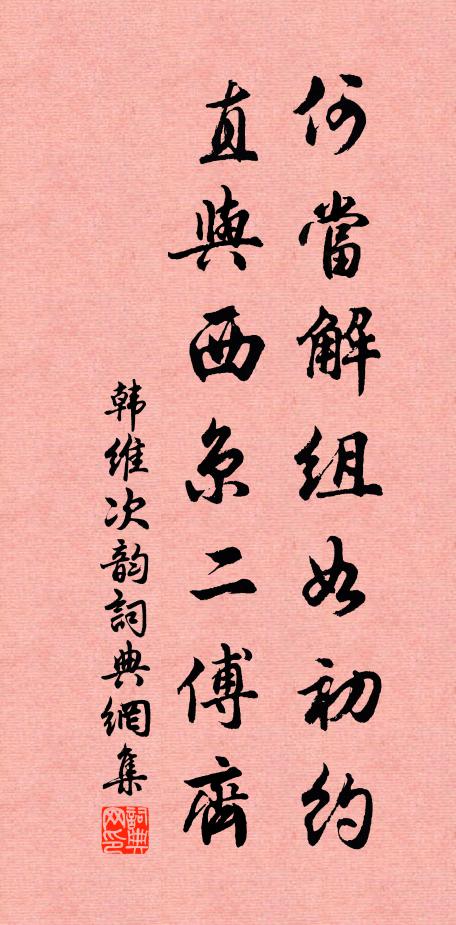 何當解組如初約
直與西京二傅齊
韓維次韵詞典網集
詞典网印